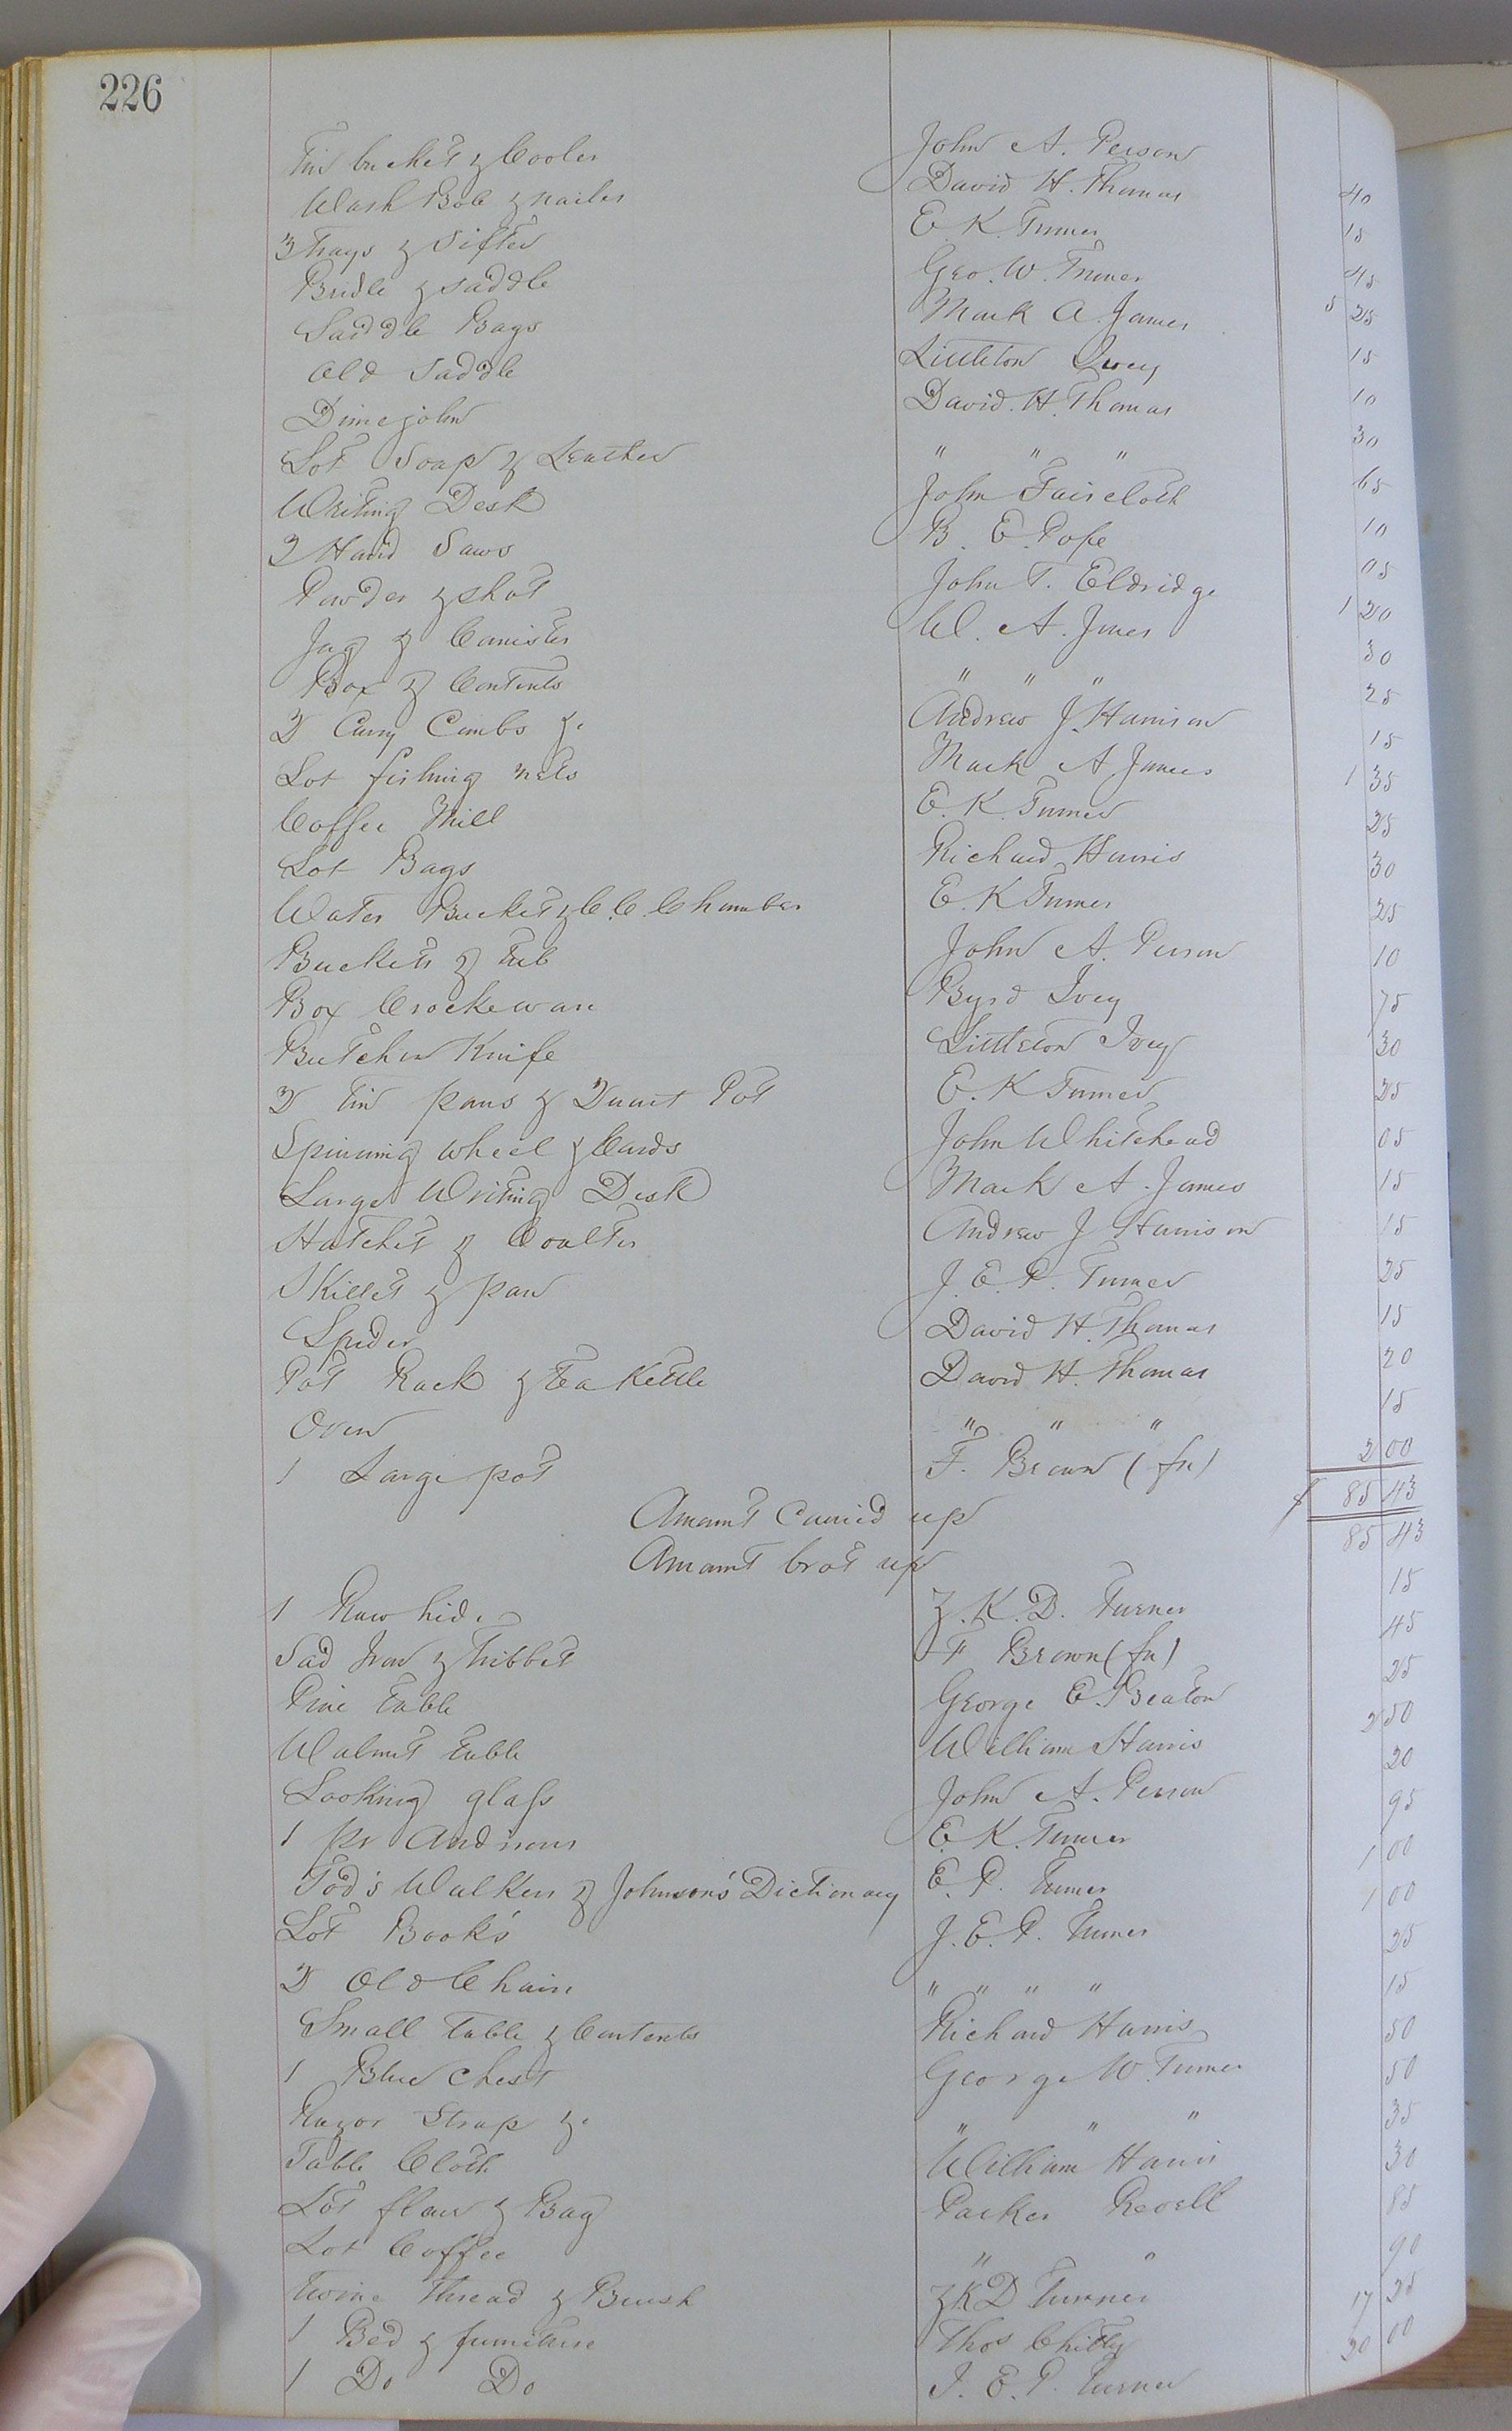 226
Tin bucket & Cooler John A. Person
Wash Bole & nailes David H. Thomas 40
3 Trays & Sifter E. K. Turner 15
Bridle & Saddle Geo. W. Turner 45
Saddle Bags Mark A. James 5 25
Old Saddle Littleton Ivey 15
Dimejohn David. H. Thomas 10
Lot Soap & Leather " " " 30
Writing Desk John Faircloth 65
2 Hand Saws B. E. Pope 10
Powder & shot John T. Eldridge 05
Jug & Canister W. A. Jones 1 20
Box & Contents " " " 30
2 Curry Combs &c Andrew J. Harrison 25
Lot fishing nets Mark A James 15
Coffee Mill E. K. Turner 1 35
Lot Bags Richard Harris 25
Water Bucket & C. C. Chamber E. K Turner 30
Buckets & Tub John A. Person 25
Box Crockeware Byrd Ivey 10
Butcher Knife Littleton Ivey 75
2 Tin pans & Quart Pot E. K Turner 30
Spinning wheel & Cards John Whitehead 25
Large Writing Desk Mark A. James 05
Hatchet & Coulter Andrew J Harrison 15
Skillet & pan J. E. P. Turner 15
Spider David H. Thomas 25
Pot Rack & Tea Kettle David H. Thomas 15
Oven " " " 20
1 Large pot F. Brown (fn) 15
2 00
Amamt Carried up $ 85 43
Amamt brot up 85 43
1 Raw hide Z. K. D. Turner 15
Sad Iron & Tribbet F Brown (fn) 45
Pine Table George E. Beaton 25
Walnut Table William Harris 2 50
Looking glass John A. Person 20
1 pr Andirons E. K. Turner 95
Tod's Walkers & Johnson's Dictionary E. P. Turner 1 00
Lot Book's J. E. P. Turner 1 00
2 Old Chairs " " " " 25
Small Table & Contents Richard Harris 15
1 Blue Chest George W. Turner 50
Razor Strap &c " " " 50
Table Cloth William Harris 35
Lot flour & Bag Parker Revell 30
Lot Coffee " " 85
Twine Thread & Brush Z K D Turner 90
1 Bed & furniture Thos Chitty 17 25
1 Do Do J. E. P. Turner 20 00